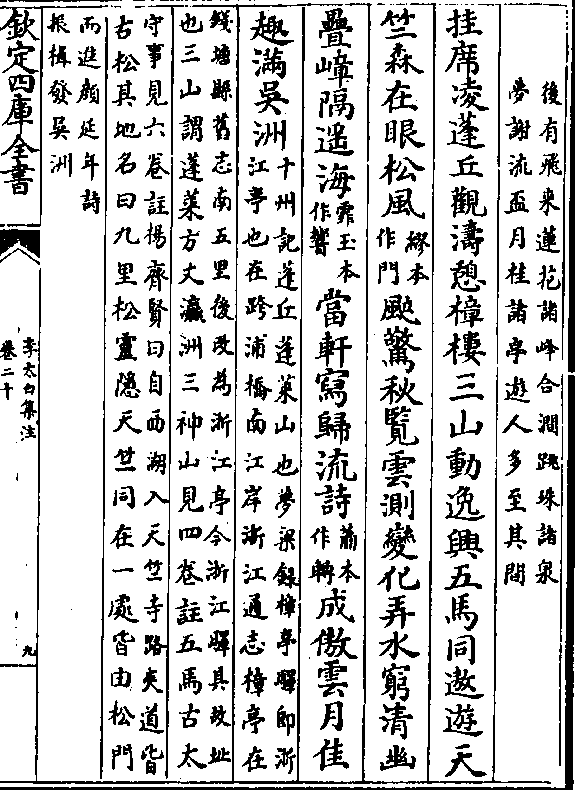 後有飛來蓮花諸峰合澗跳珠諸泉
夢謝流盃月桂諸亭遊人多至其間
挂席凌蓬丘觀濤憩樟樓三山動逸興五馬同遨遊天
竺森在眼松風繆本作門颼驚秋覽雲測變化弄水窮清幽
疊嶂隔遥海霏玉本作響當軒寫歸流詩蕭本作轉成傲雲月佳
趣滿吳洲十州記蓬丘蓬萊山也夢梁錄樟亭驛即浙
江亭也在跨浦橋南江岸浙江通志樟亭在
錢塘縣舊志南五里後改為浙江亭今浙江驛其故址
也三山謂蓬萊方丈瀛洲三神山見四卷註五馬古太
守事見六卷註楊齊賢曰自西湖入天竺寺路夾道皆
古松其地名曰九里松靈隱天竺同在一處皆由松門
而進顏延年詩
振楫發吳洲
欽定四庫全書
李太白集注
卷二十
九